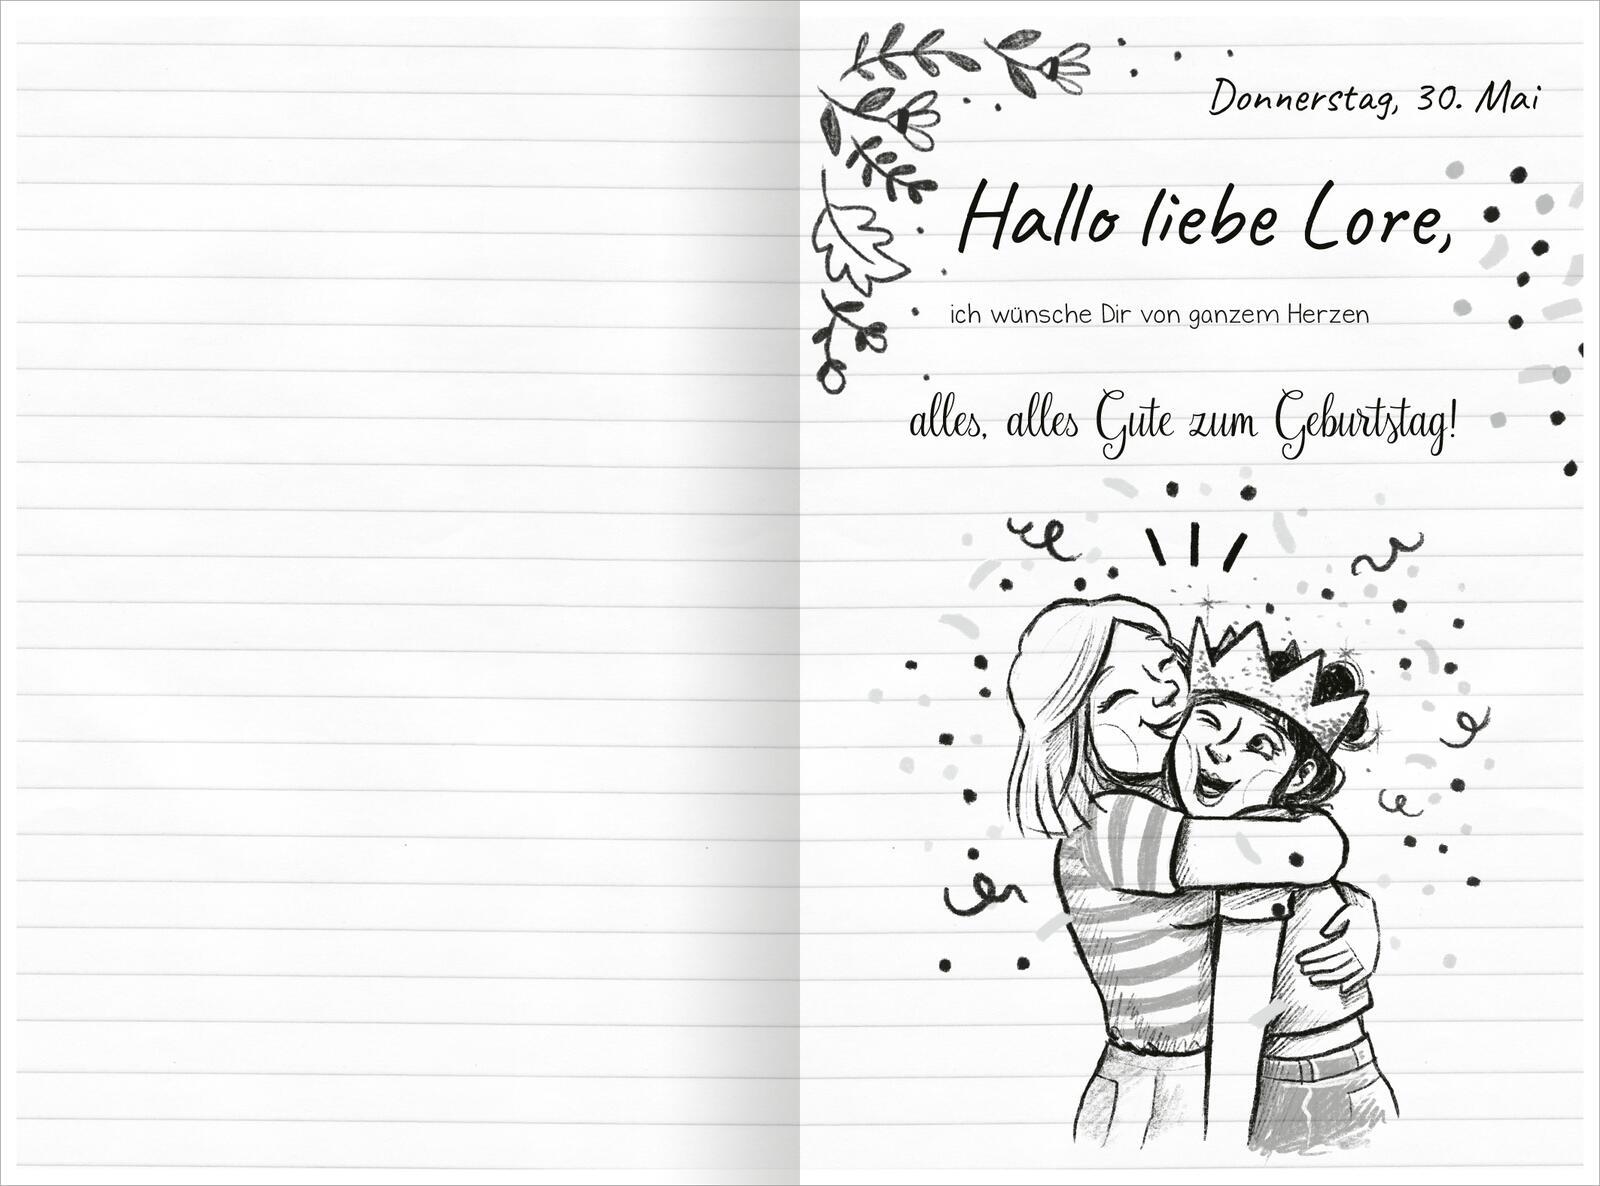 Donnerstag, 30. Mai
Hallo liebe Lore,
ich wünsche Dir von ganzem Herzen
alles, alles Gute zum Geburtstag!